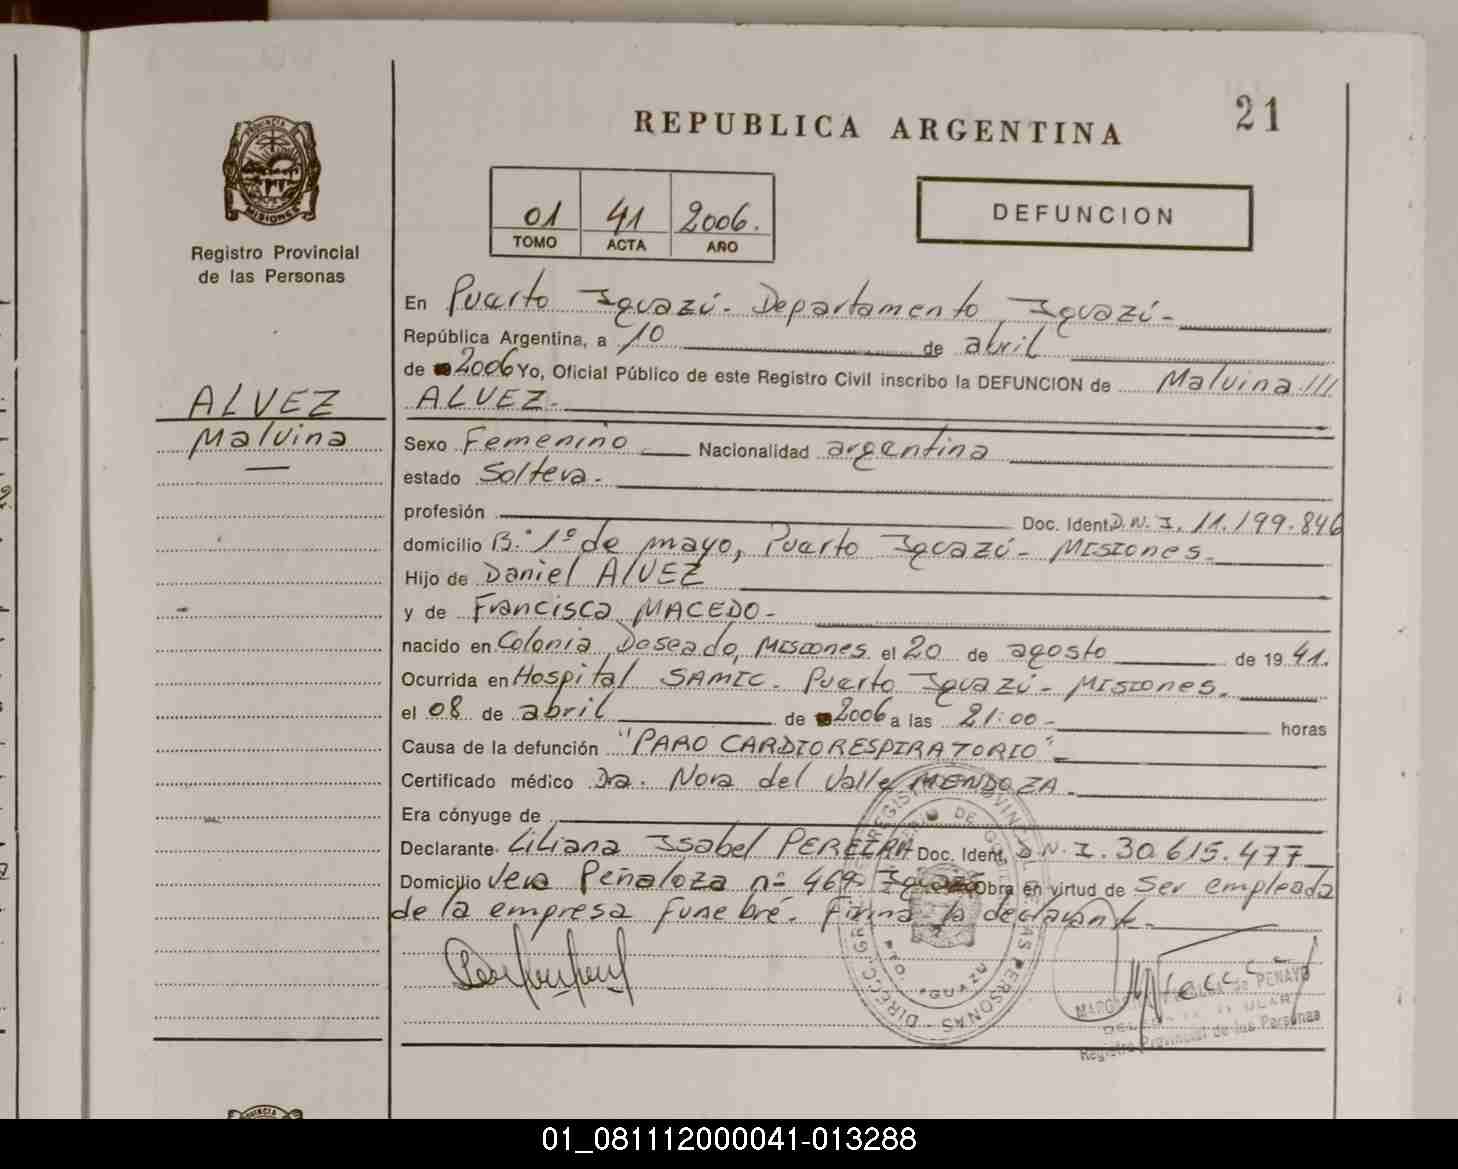 21
REPUBLICA ARGENTINA
PROVINCIA
MISIONES
Registro Provincial
de las Personas
01 41 2006.
TOMO ACTA AÑO
DEFUNCION
ALVEZ
Malvina
En Puerto Iguazú - Departamento Iguazú -
República Argentina, a 10 de abril
de 2006 Yo, Oficial Público de este Registro Civil inscribo la DEFUNCION de Malvina ///
ALVEZ -
Sexo Femenino Nacionalidad argentina
estado Soltera -
profesión Doc. Ident. D.N.I. 11.199.846
domicilio B° 1° de mayo, Puerto Iguazú - Misiones -
Hijo de Daniel ALVEZ
y de Francisca MACEDO -
nacido en Colonia Deseado, Misiones el 20 de agosto de 19 41.
Ocurrida en Hospital SAMIC - Puerto Iguazú - Misiones -
el 08 de abril de 2006 a las 21:00 - horas
Causa de la defunción "PARO CARDIORESPIRATORIO" -
Certificado médico Dra. Nora del Valle MENDOZA -
Era cónyuge de
Declarante Liliana Isabel PEREIRA Doc. Ident. D.N.I. 30.615.477
Domicilio Vera Peñaloza n° 469 Iguazú Obra en virtud de Ser empleada
de la empresa Funebré - Firma la declarante -
de PENAYO
Registro Provincial de las Personas
01_081112000041-013288